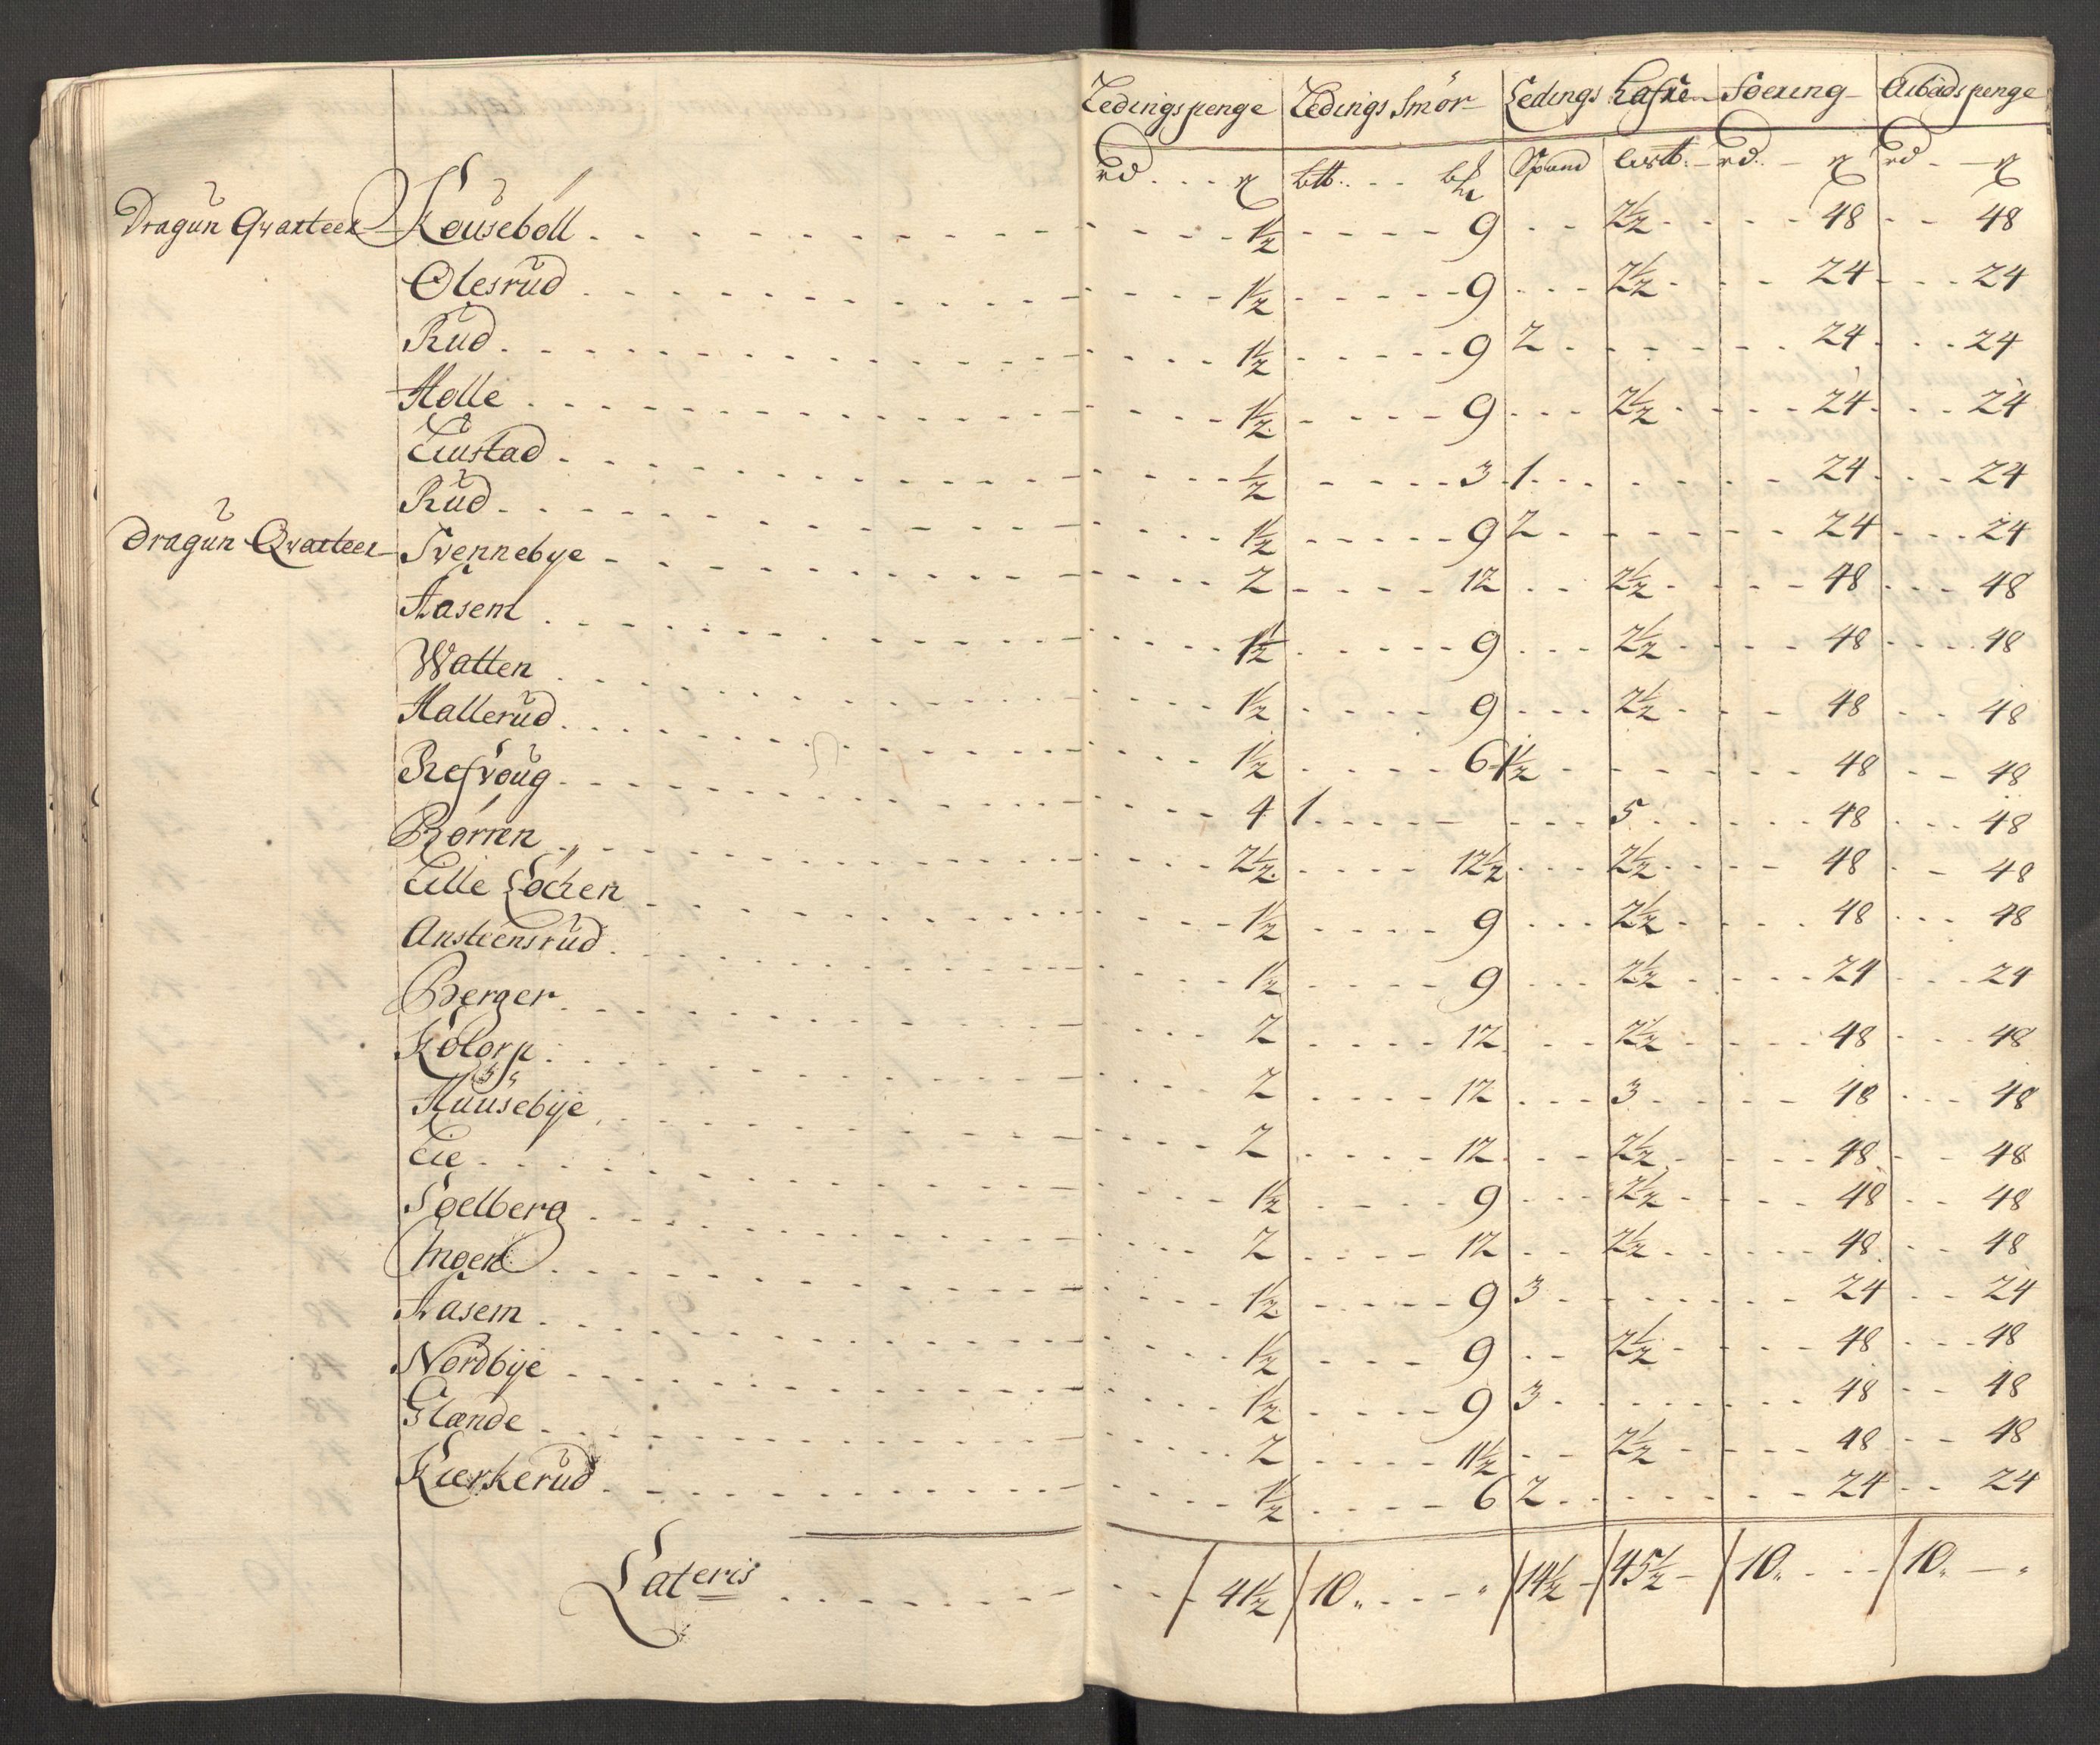 Ledingspenge Ledings Smør Ledings Hafre Foering Arbeidspenge
rd ß btt bth Spand listb rd ß rd ß
Dragün Qvarteer Kousebøll 1½ 9 2½ 48 48
Olesrüd 1½ 9 2½ 24 24
Rüd 1½ 9 2 24 24
Holle 1½ 9 2½ 24 24
Liustad ½ 3 1 24 24
Rüd 1½ 9 2 24 24
Dragün Qvarteer Svennebye 2 12 2½ 48 48
Aasem 1½ 9 2½ 48 48
Watten 1½ 9 2½ 48 48
Hallerüd 1½ 6 1½ 48 48
Refhoug 4 1 5 48 48
Børren 2½ 12½ 2½ 48 48
Lille Løcken 1½ 9 2½ 48 48
Ansteensrüd 1½ 9 2½ 24 24
Berger 2 12 2½ 48 48
Kolorp 2 12 3 48 48
Huusebye 2 12 2½ 48 48
Lie 1½ 9 2½ 48 48
Soelberg 2 12 2½ 48 48
Ingen 1½ 9 3 24 24
Aasem 1½ 9 2½ 48 48
Nordbye 1½ 9 3 48 48
Glænde 2 11½ 2½ 48 48
Kierkerüd 1½ 6 2 24 24
Lateris 41½ 10 14½ 45½ 10 10